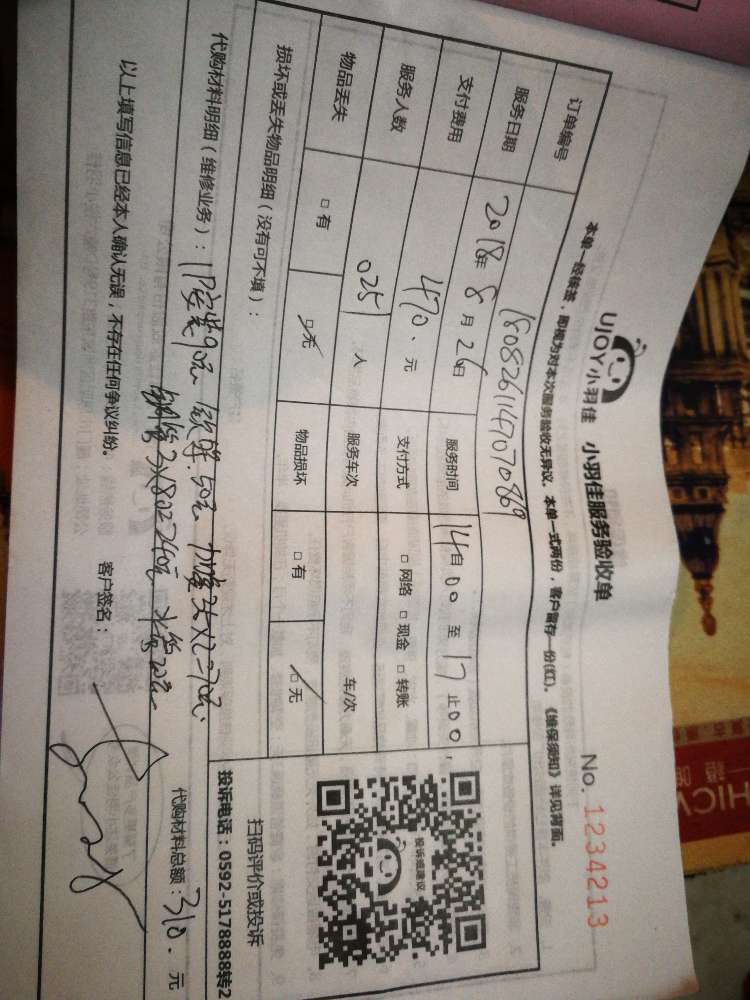 UJOY小羽佳 小羽佳服务验收单
No. 1234213
本单一经核签，即视为对本次服务验收无异议，本单一式两份，客户留存一份(红)。《维保须知》详见背面。
订单编号 180826147070869
服务日期 2018年 8月 26日 服务时间 14自00 至 17止00
支付费用 470. 元 支付方式 □ 网络 □ 现金 □ 转账
服务人数 025) 人 服务车次 车/次
物品丢失 □ 有 □ 无 物品损坏 □ 有 □ 无
损坏或丢失物品明细（没有可不填）：
投诉或建议
扫码评价或投诉
投诉电话：0592-5178888转2
代购材料明细（维修业务）：
50元
3X80=240元 20元
代购材料总额：310. 元
以上填写信息已经本人确认无误，不存在任何争议纠纷。
客户签名：